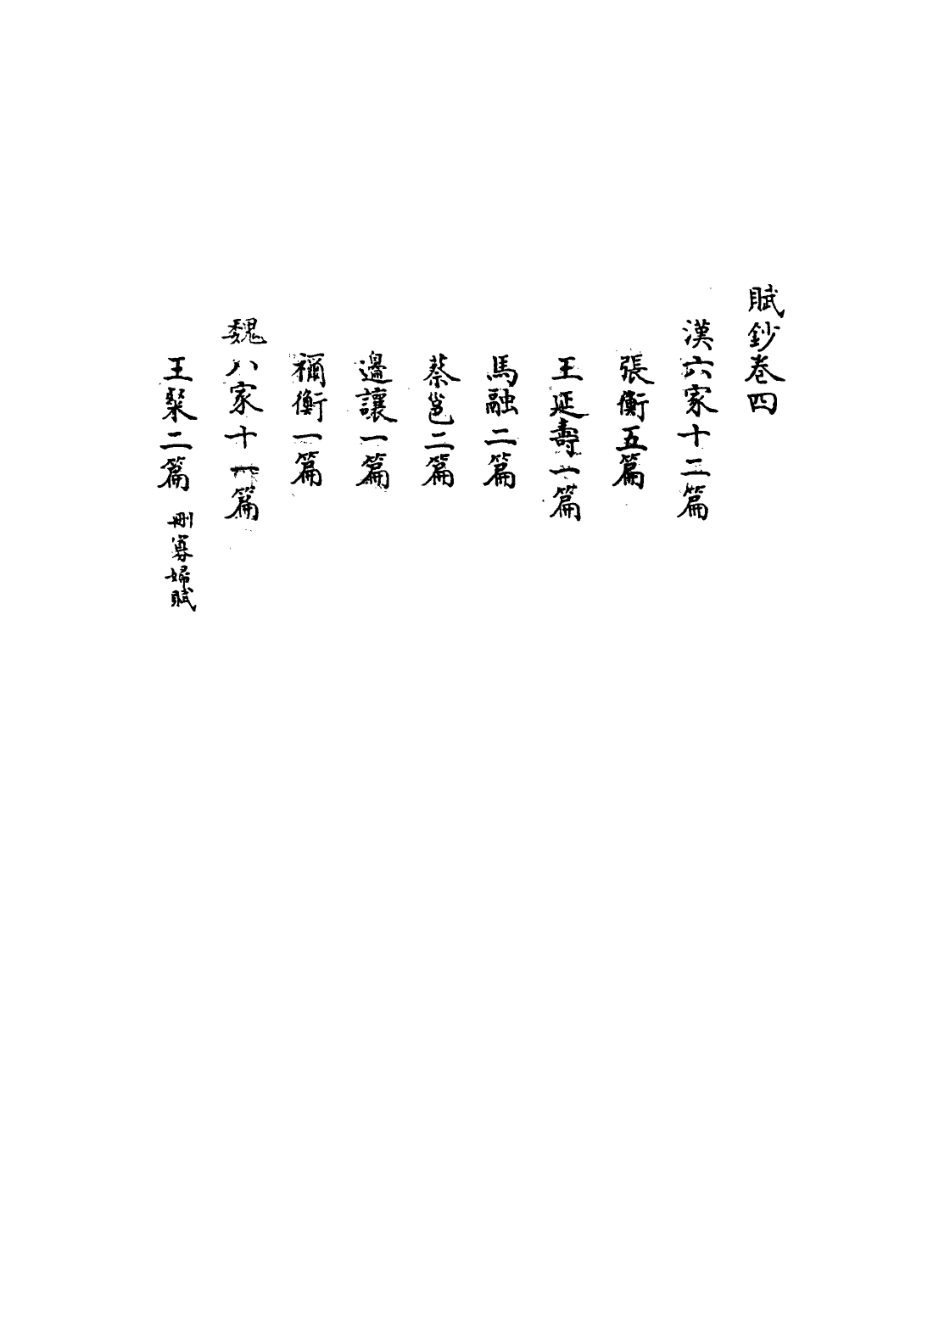 賦鈔卷四
漢六家十二篇
張衡五篇
王延壽一篇
馬融二篇
蔡邕二篇
邊讓一篇
禰衡一篇
魏八家十篇
王粲二篇 刪寡婦賦